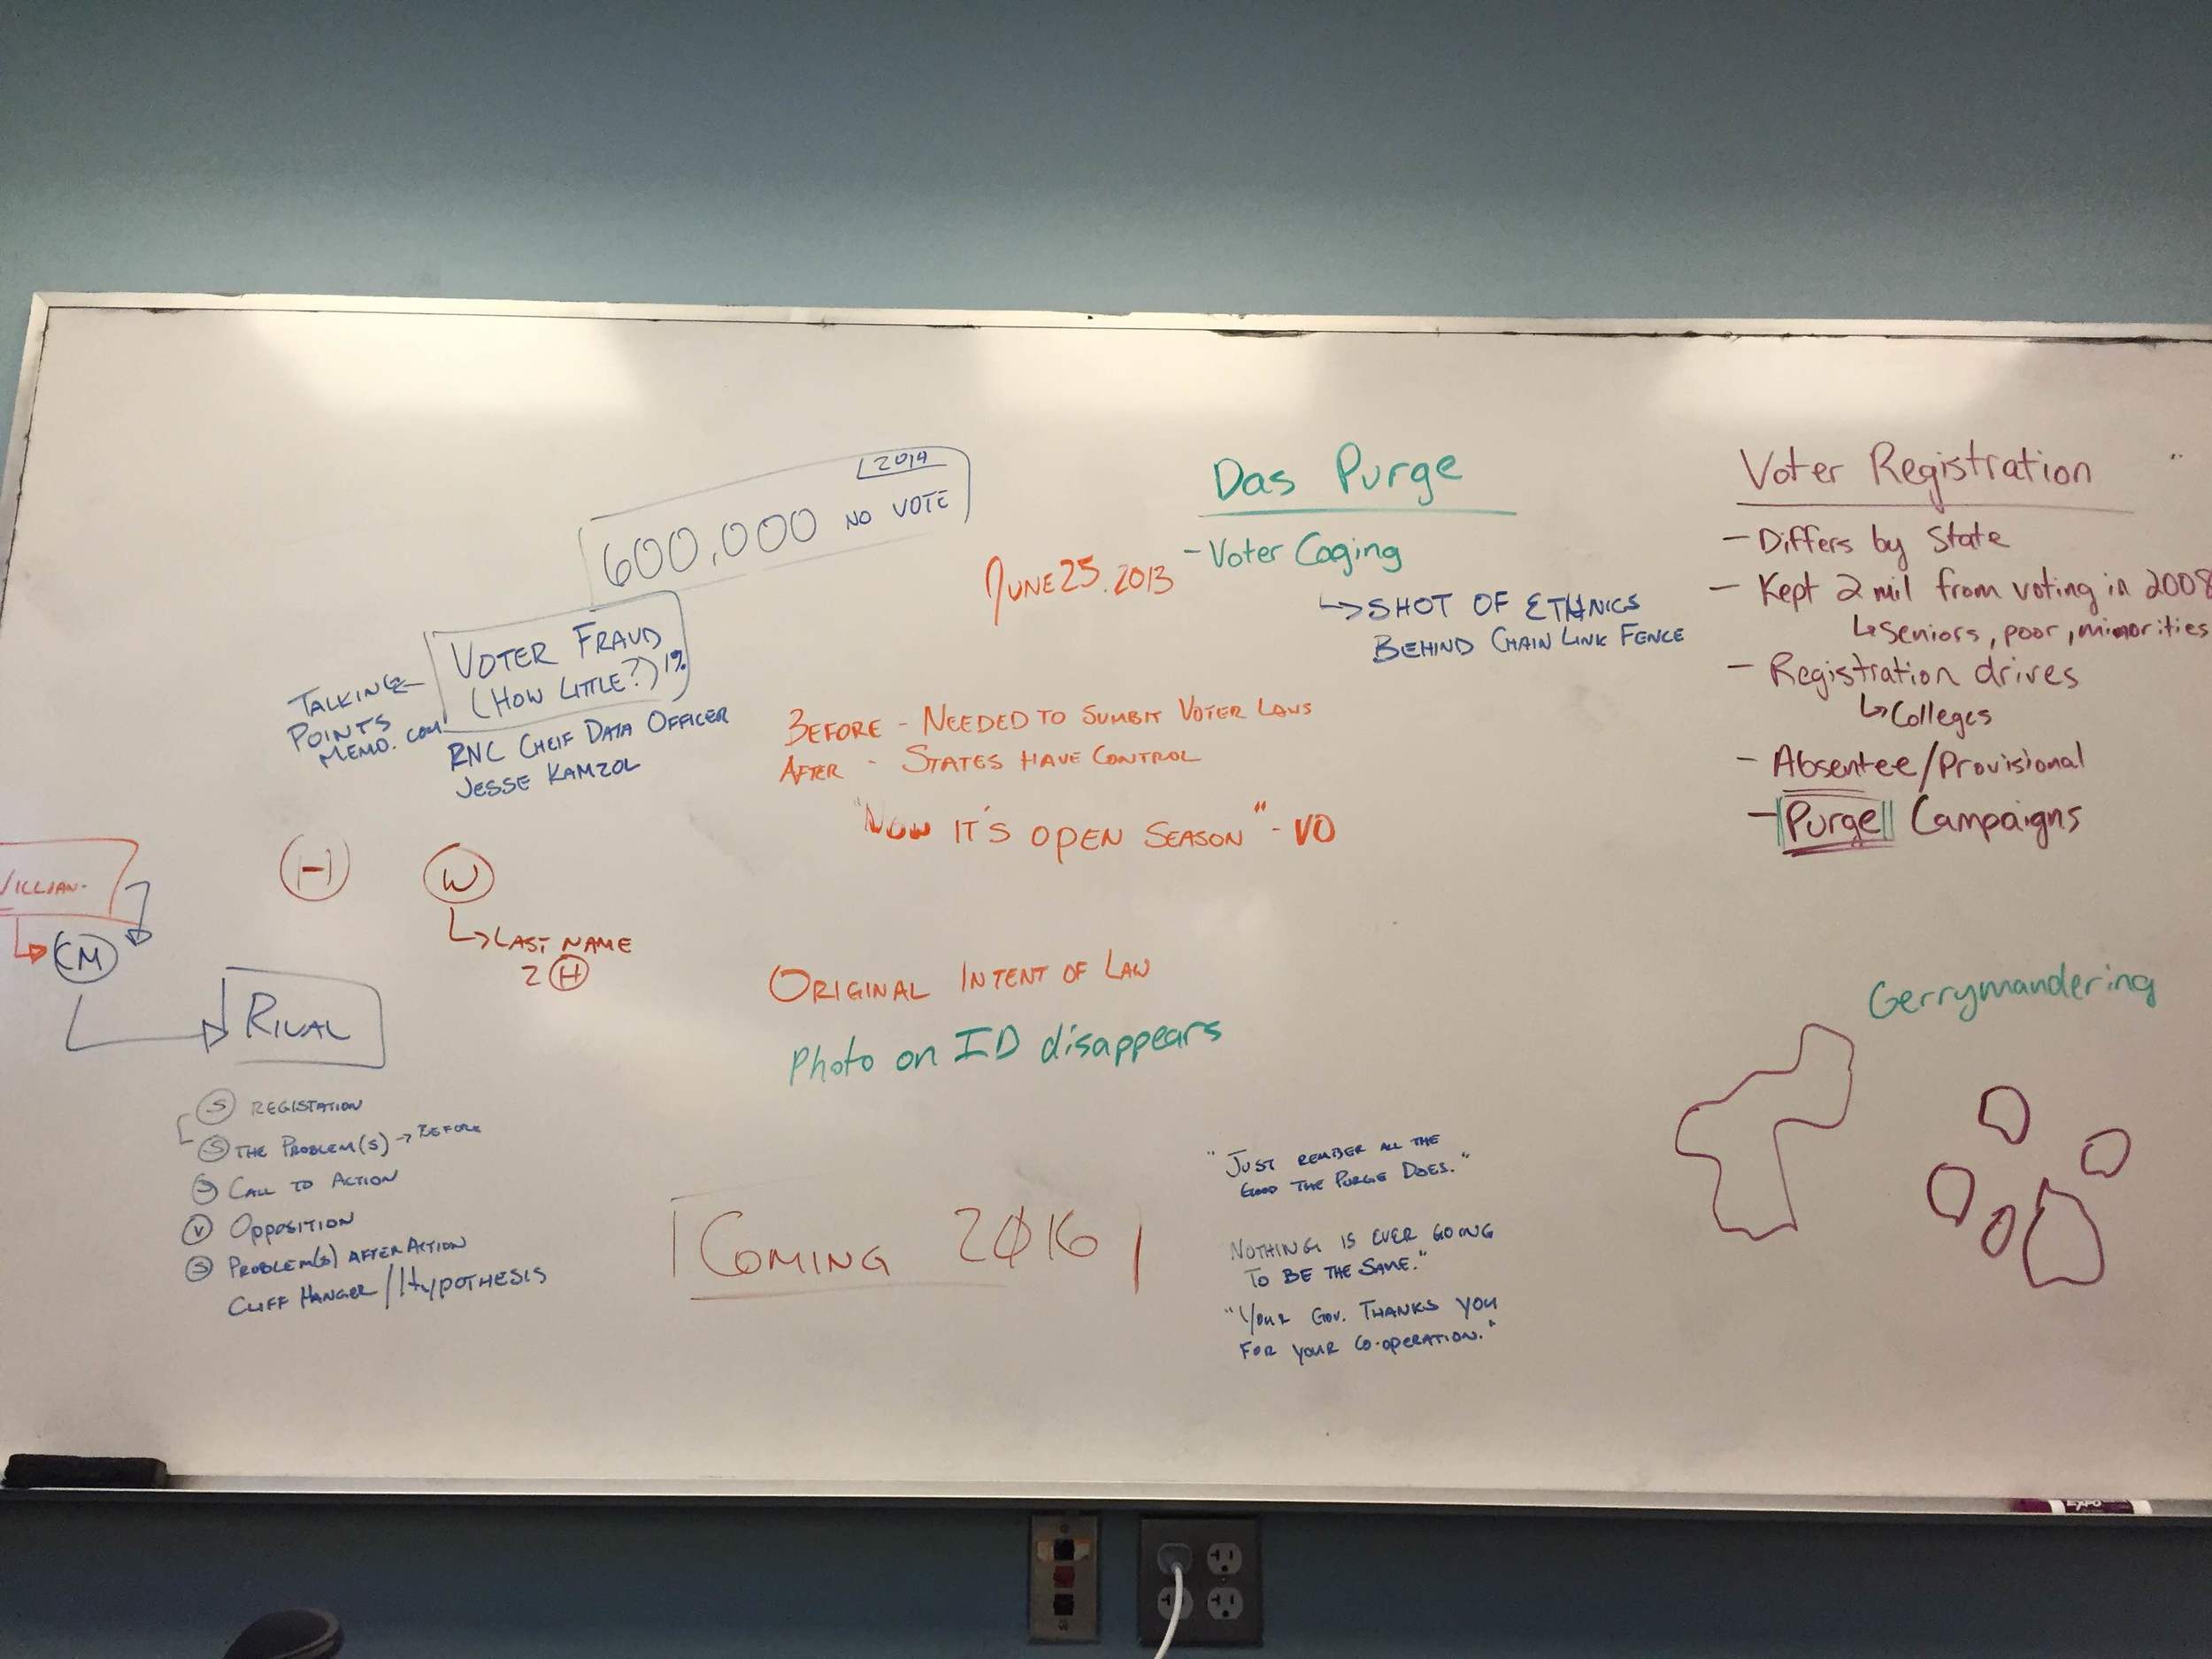 2014
600,000 NO VOTE
VOTER FRAUD
(HOW LITTLE?) 1%
TALKING
POINTS
MEMO.COM
RNC CHEIF DATA OFFICER
JESSE KAMZOL
JUNE 25.2013
BEFORE - NEEDED TO SUMBIT VOTER LAWS
AFTER - STATES HAVE CONTROL
"NOW IT'S OPEN SEASON" - VO
VILLIAN-
CM
RIVAL
H
W
↳ LAST NAME
2 H
ORIGINAL INTENT OF LAW
Photo on ID disappears
S REGISTATION
S THE PROBLEM(S) → BEFORE
S CALL TO ACTION
V OPPOSITION
S PROBLEM(S) AFTER ACTION
CLIFF HANGER/HYPOTHESIS
COMING 2016
Das Purge
- Voter Caging
↳ SHOT OF ETHNICS
BEHIND CHAIN LINK FENCE
"JUST REMBER ALL THE
GOOD THE PURGE DOES."
NOTHING IS EVER GOING
TO BE THE SAME."
"YOUR GOV. THANKS YOU
FOR YOUR CO-OPERATION."
Voter Registration
- Differs by State
- Kept 2 mil from voting in 2008
↳ Seniors, poor, minorities
- Registration drives
↳ Colleges
- Absentee/Provisional
- Purge Campaigns
Gerrymandering
EXPO